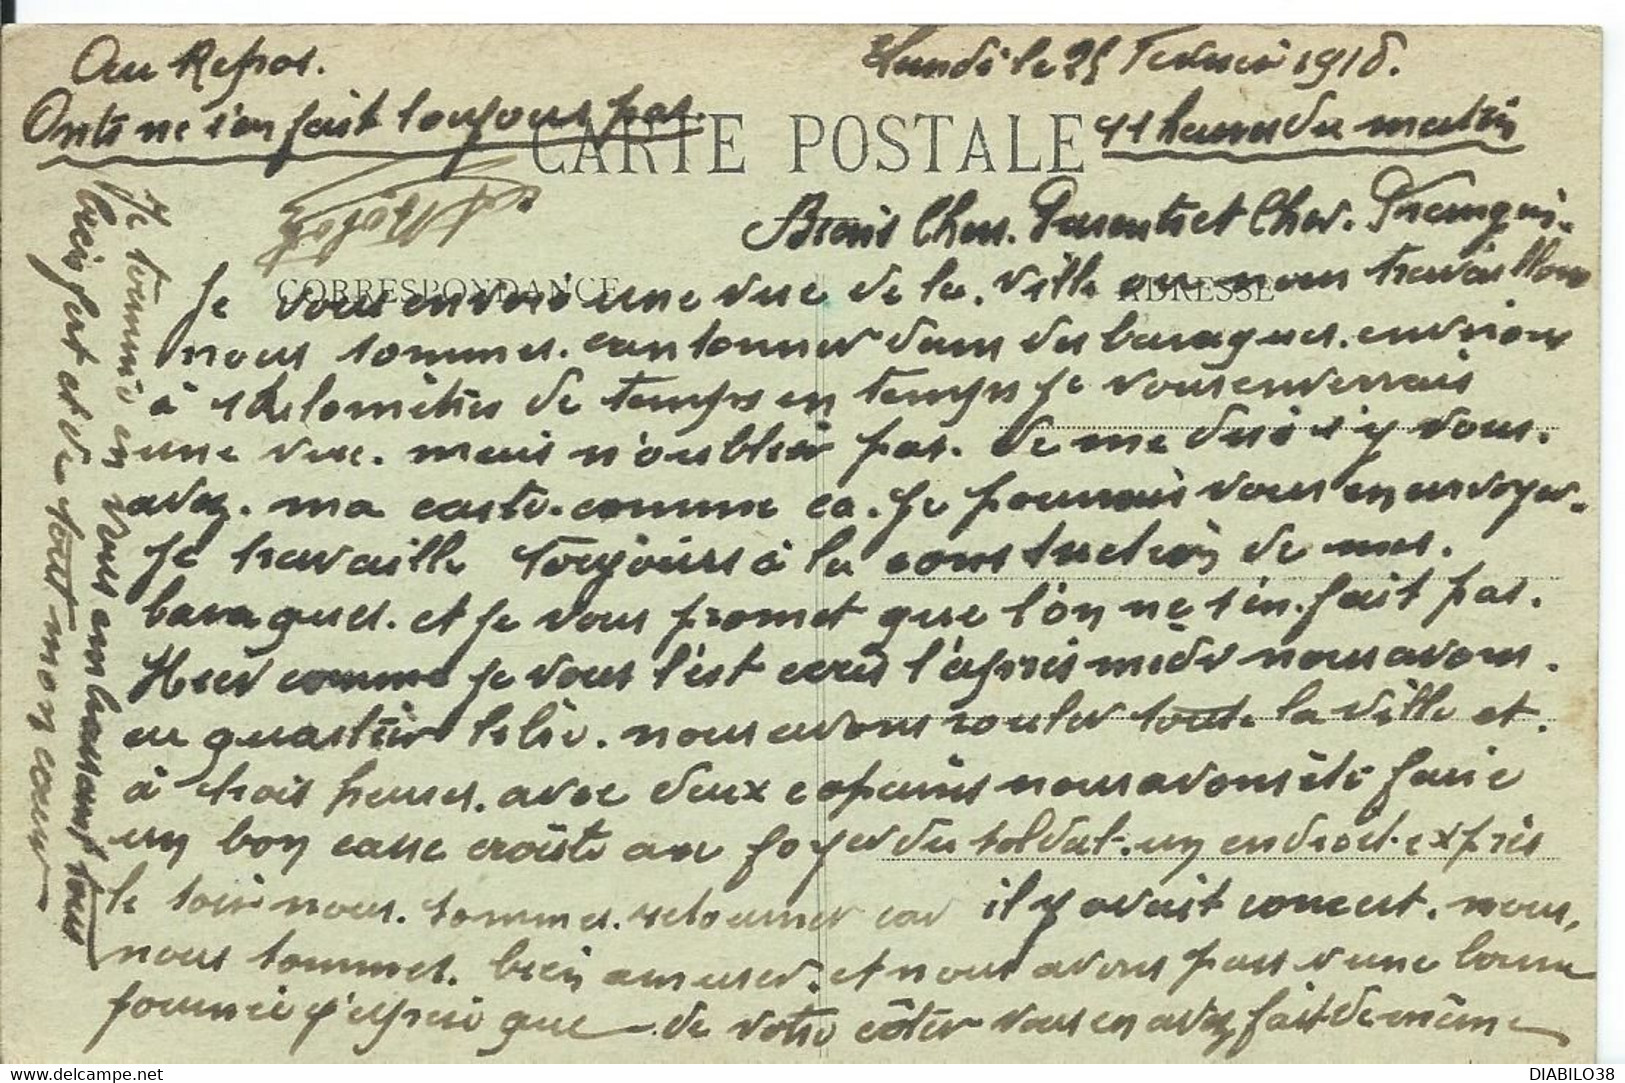 Au Repos.
Lundi le 25 Fevrier 1918.
Onts ne s'en fait toujours pas.
11 heures du matin
CARTE POSTALE
Biens Chers. Parents et Cher.
CORRESPONDANCE
ADRESSE
Je vous envois une vue de la. Ville ou nous travaillons
nous sommes. cantonner dans des baraques. environs
à 1 kilomètres de temps en temps je vous enverrais
une vue. mais n'oublier pas. de me dire si y vous.
avez. ma carte. comme ca. je pourrais vous en envoyer.
Je travaille toujours à la construction de nos.
baraques. et je vous promet que l'on ne s'en. fait pas.
Hier comme je vous l'est ecris l'après midi nous avons.
eu quartier libre. nous avons rouler toute la ville et.
à trois heures. avec deux copains nous avons été faire
un bon casse croûte au foyer du soldat. un endroit. exprès
le soir nous. sommes. retourner car il y avait concert. nous,
nous sommes. bien amuser. et nous avons passer une bonne
journée j'espère que de votre côter vous en avez fait de même
Je termine en vous embrassant tous
bien fort et de tout mon coeur
DIABILO38